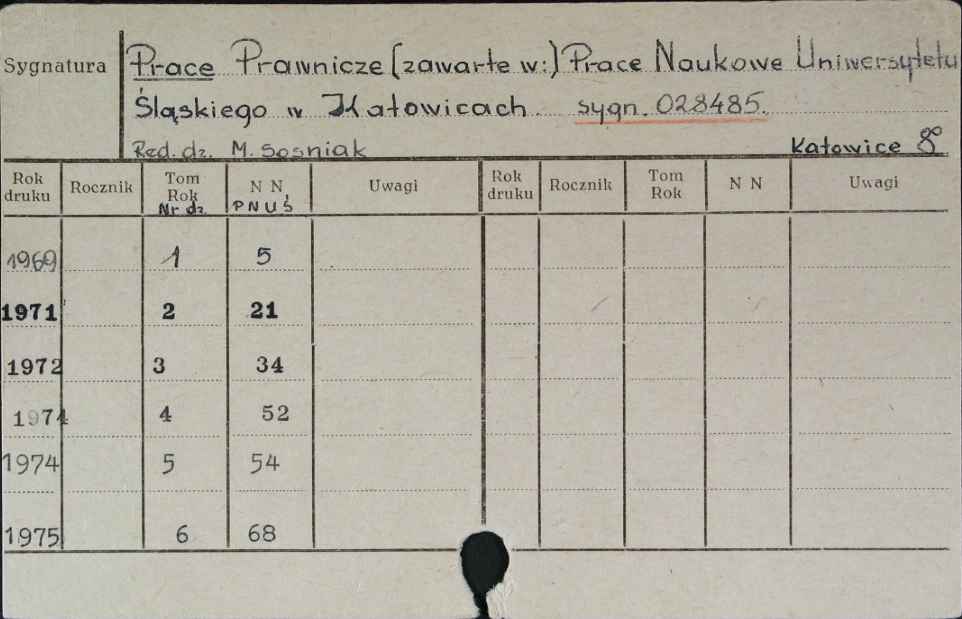 Sygnatura Prace Prawnicze (zawarte w:) Prace Naukowe Uniwersytetu
Śląskiego w Katowicach. sygn. 028485.
Red. dz. M. Sosniak Katowice 8°
Rok druku Rocznik Tom Rok Nr dz. N N PNUŚ Uwagi Rok druku Rocznik Tom Rok N N Uwagi
1969 1 5
1971 2 21
1972 3 34
1974 4 52
1974 5 54
1975 6 68